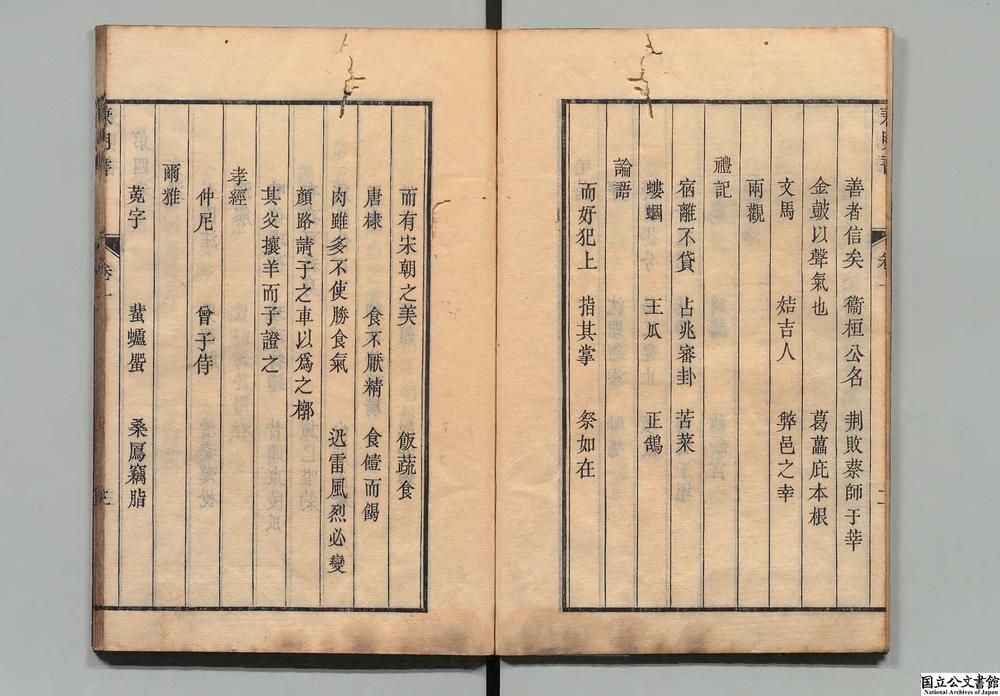 善者信矣 衞桓公名 荆敗蔡師于莘
金鼓以聲氣也 葛藟庇本根
文馬 姞吉人 弊邑之幸
兩觀
禮記
宿離不貸 占兆審卦 苦菜
螻蟈 王瓜 正鵠
論語
而好犯上 指其掌 祭如在
而有宋朝之美 飯蔬食
唐棣 食不厭精 食饐而餲
肉雖多不使勝食氣 迅雷風烈必變
顔路請子之車以爲之槨
其父攘羊而子證之
孝經
仲尼 曾子侍
爾雅
萈字 蜚蠦蜰 桑鳸竊脂
卷一
国立公文書館
National Archives of Japan